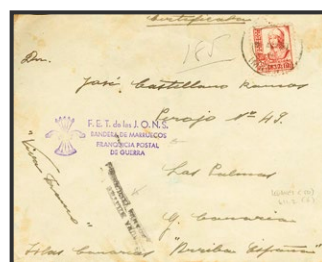 Certificado
185
Dn.
José Castellano Ramos
Perojo Nº 43.
F.E.T. de las J.O.N.S.
BANDERA DE MARRUECOS
FRANQUICIA POSTAL
DE GUERRA
Las Palmas
G. Canaria
"Viva Franco"
Islas Canarias "Arriba España"